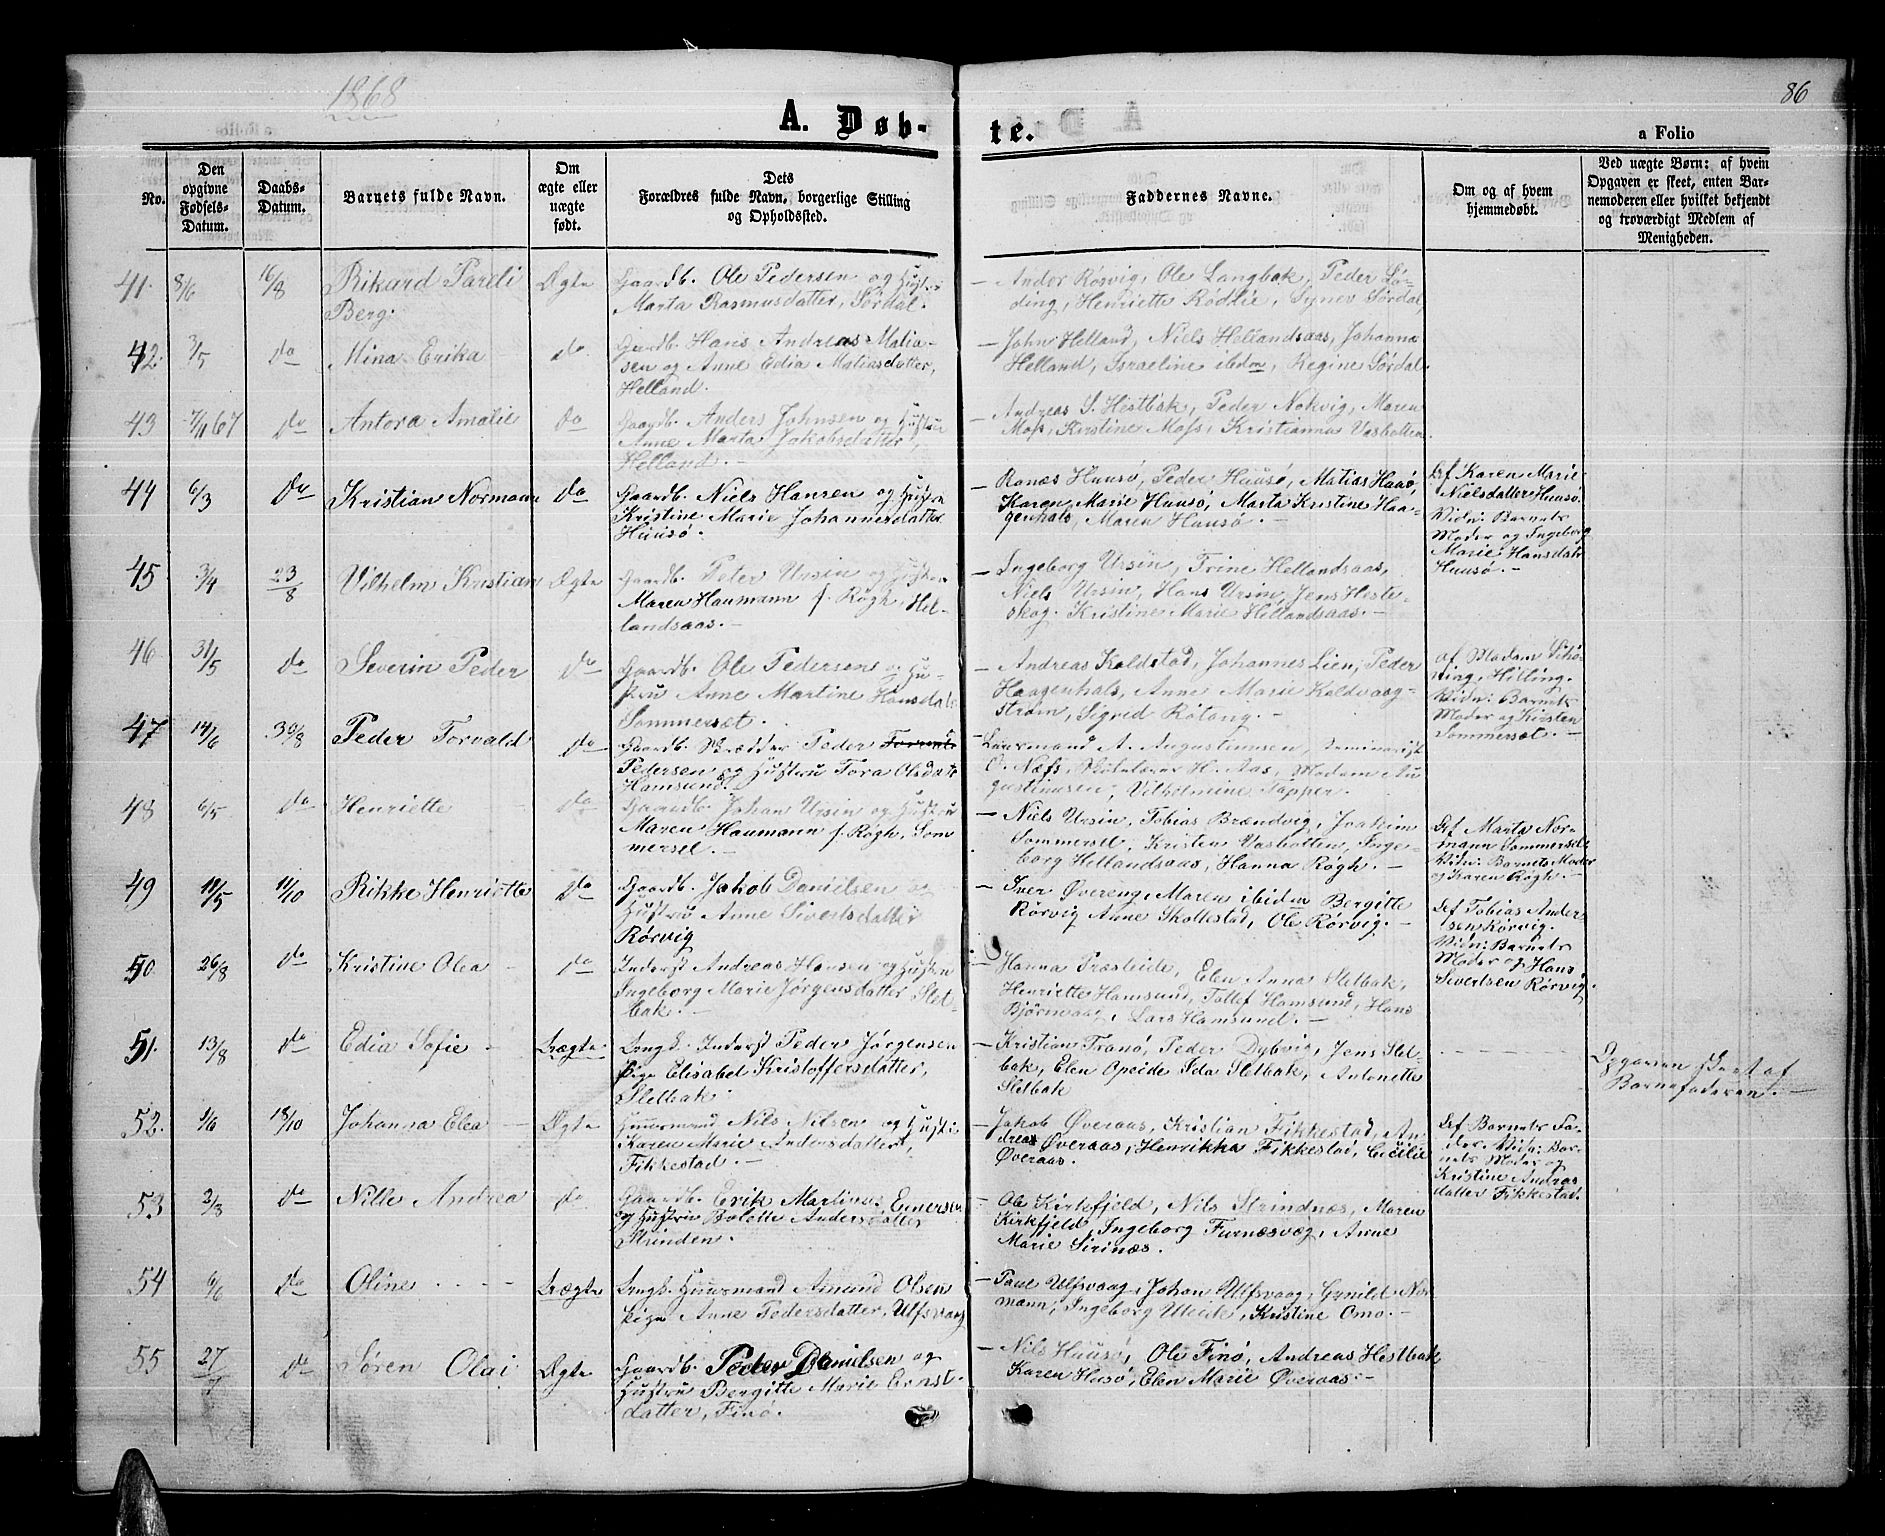 1868
86
A. Døb-
te.
a Folio
No.
Den
opgivne
Fødsels-
Datum.
Daabs-
Datum.
Barnets fulde Navn.
Om
ægte eller
uægte
født.
Dets
Forældres fulde Navn, borgerlige Stilling
og Opholdssted.
Faddernes Navne.
Om og af hvem
hjemmedøbt.
Ved uægte Børn: af hvem
Opgaven er skeet, enten Bar-
nemoderen eller hvilket bekjendt
og troværdigt Medlem af
Menigheden.
41. 8/6 16/8 Rikard Pareli
Berg.
Ægte
Gaardb. Ole Pedersen og Hustru
Marta Rasmusdatter, Sørdal.
– Andor Rørvig, Ole Langbak, Peder Lø-
ding, Henriette Rødlie, Synev Sørdal,
42. 3/5 do Mina Erika do
Gaardb. Hans Andreas Matia-
sen og Anne Edia Matiasdatter,
Helland.
– John Helland, Niels Hellandsaas, Johanna
Helland, Israeline ibidem, Regine Sørdal.
43 7/11 67 do Antora Amalie do
Gaardb. Anders Johnsen og Hustru
Anne Marta Jakobsdatter,
Helland. –
– Andreas S. Hestbak, Peder Nokvig, Maren
Moss, Kirstine Moss, Kristianna Vasbotten.
44 6/3 do Kristian Normann do
Gaardb. Niels Hansen og Hustru
Kristine Marie Johannesdatter
Huusø.
– Ranæs Huusø, Peder Huusø, Matias Huusø,
Karen Marie Huusø, Marta Kristine Haa-
genhals, Maren Huusø. –
Af Karen Marie
Nielsdatter Huusø.
Vidn: Barnets
Moder og Ingeborg
Marie Hansdatr
Huusø. –
45 3/4 23/8 Vilhelm Kristian Ægte
Gaardb. Peter Ursin og Hustru
Maren Haumann f. Røgh, Hel-
landsaas. –
– Ingeborg Ursin, Trine Hellandsaas,
Niels Ursin, Hans Ursin, Jens Heste-
skog. Kristine Marie Hellandsaas. –
46 31/5 do Severin Peder do
Gaardb. Ole Pedersen og Hu-
stru Anne Martine Hansdatr
Sommerset.
– Andreas Koldstad, Johannes Lien, Peder
Haagenhals, Anne Marie Koldvaag-
strøm, Sigred Røtang. –
af Madam Schø-
ning, Hilling.
Vidn: Barnets
Moder og Kirsten
Sommerset. –
47 14/6 30/8 Peder Torvald do
Gaardb. Skrædder Peder
Pedersen og Hustru Tora Olsdatr
Hamsund.
– Lensmand A. Augustinusen, Seminarist
O. Næss, Skolelærer H. Aas, Madam Au-
gustinusen, Vilhelmine Tapper.
48 6/5 do Henriette do
Gaardb. Johan Ursin og Hustru
Maren Haumann f. Røgh, Som-
mersel. –
– Niels Ursin, Tobias Brændvig, Joakim
Sommersel, Kristen Vasbotten, Inge-
borg Hellandsaas, Hanna Røgh. –
Af Marta Nor-
mann Sommersel.
Vidn: Barnets Moder
og Karen Røgh. –
49 11/5 11/10 Rikke Henriette do
Gaardb. Jakob Danielsen og
Hustru Anne Sivertsdatter
Rørvig
– Iver Øvereng, Maren ibidem Bergitte
Rørvig Anne Skottestad, Ole Rørvig. –
Af Tobias Ander
sen Rørvig.
Vidn: Barnets
Moder og Hans
Severtsen Rørvig.
50 26/8 do Kristine Olea do
Inderst Andreas Hansen og Hustru
Ingeborg Marie Jørgensdatter Slet-
bak. –
Hanna Præsteide, Elen Anna Sletbak,
Henriette Hamsund, Tollef Hamsund, Hans
Bjørnvaag, Lars Hamsund. –
51. 13/8 do Edia Sofie – Uægte
Ungk. Inderst Peder Jørgensen
Pige Elisabet Kristoffersdatter,
Sletbak.
– Kristian Tranø, Peder Dybvig, Jens Slet-
bak, Elen Opeide Ida Sletbak, Antonette
Sletbak
Opgaven skeet af
Barnefaderen. –
52. 1/6 18/10 Johanna Elea – Ægte
Huusmand Nils Nilsen og Hustru
Karen Marie Andersdatter,
Fikkestad. –
Jakob Øveraas, Kristian Fikkestad, An
dreas Øveraas, Henrikka Fikkestad, Cecilie
Øveraas.
Af Barnets Fa-
der. Vidn: Bar-
nets Moder og
Kristine Andreas
datter Fikkestad.
53 3/8 do Nille Andrea do
Gaardb. Erik Martinus Enersen
og Hustru Bolette Andersdatter
Strinden.
– Ole Kirkfjeld, Nils Strindnæs, Maren
Kirkfjeld, Ingeborg Furnæsvæg, Anne
Marie Sirinæs.
54 6/6 do Oline Uægte
Ungk. Huusmand Amund Olsen
Pige Anne Pedersdatter, Ulfsvaag
– Paul Ulfsvaag, Johan Ulfsvaag, Gunild Nor
mann, Ingeborg Uteide, Kristine Omo. –
55 27/7 do Søren Olai Ægte
Gaardb. Peder Danielsen og
Hustru Bergitte Marie Ernst-
datter, Finø.
– Nils Huusø, Ole Finø, Andreas Hestbak
Karen Husø, Elen Marie Øveraas. –